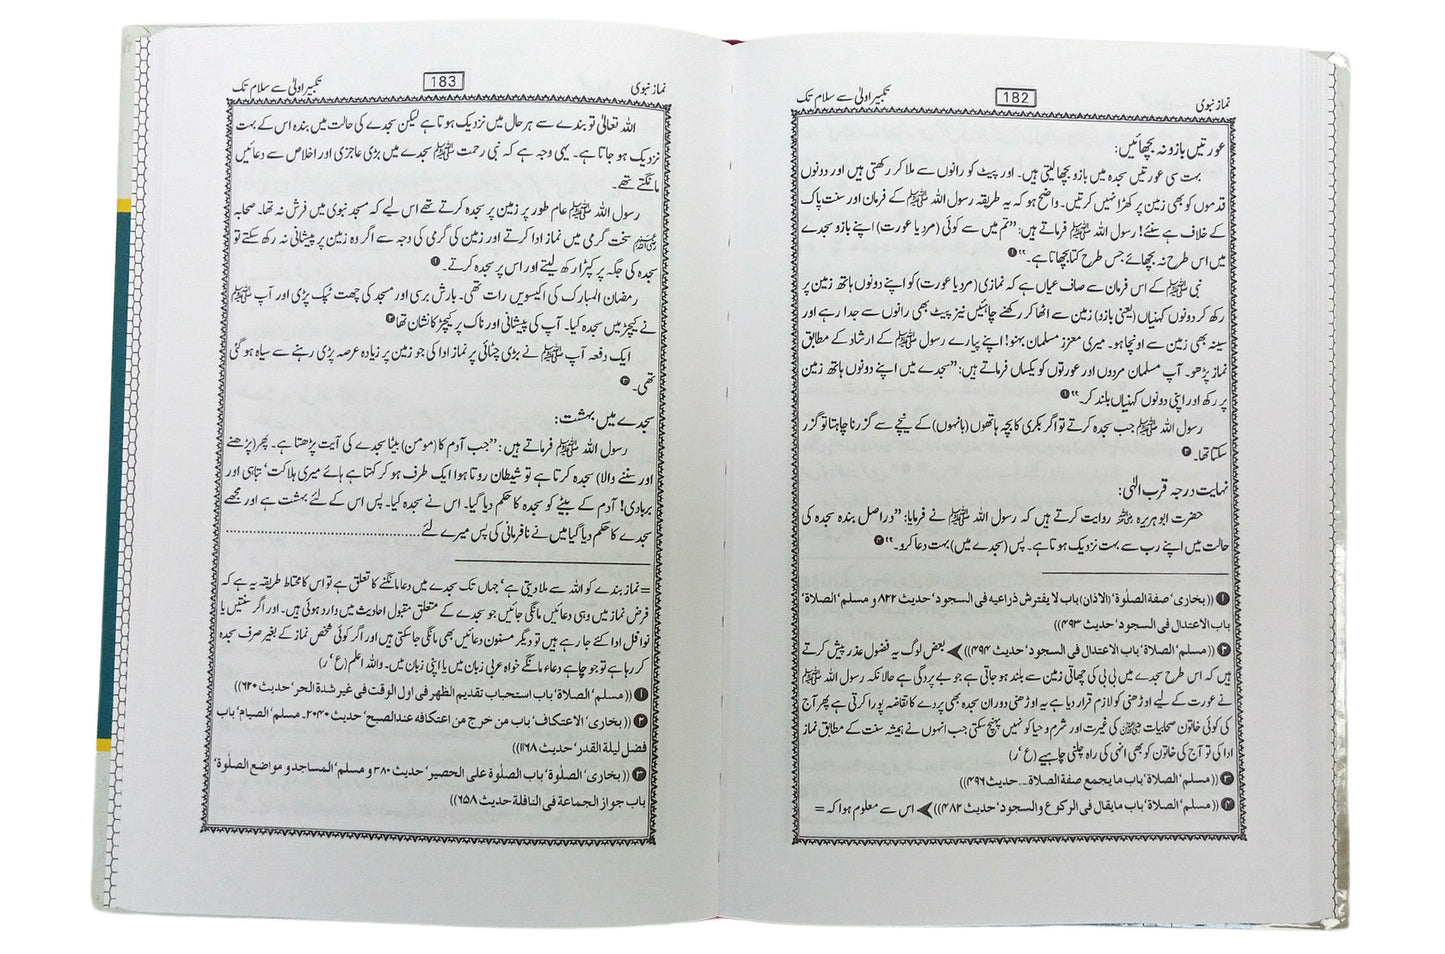 نماز نبوی
182
تکبیر اولیٰ سے سلام تک
عورتیں بازو نہ بچھائیں:
بہت سی عورتیں سجدہ میں بازو بچھا لیتی ہیں۔ اور پیٹ کو رانوں سے ملا کر رکھتی ہیں اور دونوں
قدموں کو بھی زمین پر کھڑا نہیں کرتیں۔ واضح ہو کہ یہ طریقہ رسول اللہ ﷺ کے فرمان اور سنت پاک
کے خلاف ہے سنئے! رسول اللہ ﷺ فرماتے ہیں: ”تم میں سے کوئی (مرد یا عورت) اپنے بازو سجدے
میں اس طرح نہ بچھائے جس طرح کتا بچھاتا ہے۔“ ❶
نبی ﷺ کے اس فرمان سے صاف عیاں ہے کہ نمازی (مرد یا عورت) کو اپنے دونوں ہاتھ زمین پر
رکھ کر دونوں کہنیاں (یعنی بازو) زمین سے اٹھا کر رکھنے چاہئیں نیز پیٹ بھی رانوں سے جدا رہے اور
سینہ بھی زمین سے اونچا ہو۔ میری معزز مسلمان بہنو! اپنے پیارے رسول ﷺ کے ارشاد کے مطابق
نماز پڑھو۔ آپ مسلمان مردوں اور عورتوں کو یکساں فرماتے ہیں: ”سجدے میں اپنے دونوں ہاتھ زمین
پر رکھ اور اپنی دونوں کہنیاں بلند کر۔“ ❶
رسول اللہ ﷺ جب سجدہ کرتے تو اگر بکری کا بچہ ہاتھوں (بانہوں) کے نیچے سے گزرنا چاہتا تو گزر
سکتا تھا۔ ❸
نہایت درجہ قرب الٰہی:
حضرت ابو ہریرہ رضی اللہ عنہ روایت کرتے ہیں کہ رسول اللہ ﷺ نے فرمایا: ”دراصل بندہ سجدہ کی
حالت میں اپنے رب سے بہت نزدیک ہوتا ہے۔ پس (سجدے میں) بہت دعا کرو۔“ ❹
❶ ((بخاری‘ صفۃ الصلٰوۃ‘ (الاذان) باب لا یفترش ذراعیہ فی السجود‘ حدیث ۸۲۲ و مسلم‘ الصلاۃ‘
باب الاعتدال فی السجود‘ حدیث ۴۹۳))
❷ ((مسلم‘ الصلاۃ‘ باب الاعتدال فی السجود‘ حدیث ۴۹۴)) ➤ بعض لوگ یہ فضول عذر پیش کرتے
ہیں کہ اس طرح سجدے میں بی بی کی چھاتی زمین سے بلند ہو جاتی ہے جو بے پردگی ہے حالانکہ رسول اللہ ﷺ
نے عورت کے لیے اوڑھنی کو لازم قرار دیا ہے یہ اوڑھنی دوران سجدہ بھی پردے کا تقاضہ پورا کرتی ہے پھر آج
کی کوئی خاتون صحابیات کی غیرت اور شرم و حیا کو نہیں پہنچ سکتی جب انہوں نے ہمیشہ سنت کے مطابق نماز
ادا کی تو آج کی خاتون کو بھی انہی کی راہ چلنی چاہیے (ع‘ر)
❸ ((مسلم‘ الصلاۃ‘ باب ما یجمع صفۃ الصلاۃ...حدیث ۴۹۶))
❹ ((مسلم‘ الصلاۃ‘ باب مایقال فی الرکوع والسجود‘ حدیث ۴۸۲)) ➤ اس سے معلوم ہوا کہ =
نماز نبوی
183
تکبیر اولیٰ سے سلام تک
اللہ تعالیٰ تو بندے سے ہر حال میں نزدیک ہوتا ہے لیکن سجدے کی حالت میں بندہ اس کے بہت
نزدیک ہو جاتا ہے۔ یہی وجہ ہے کہ نبی رحمت ﷺ سجدے میں بڑی عاجزی اور اخلاص سے دعائیں
مانگتے تھے۔
رسول اللہ ﷺ عام طور پر زمین پر سجدہ کرتے تھے اس لیے کہ مسجد نبوی میں فرش نہ تھا۔ صحابہ
سخت گرمی میں نماز ادا کرتے اور زمین کی گرمی کی وجہ سے اگر وہ زمین پر پیشانی نہ رکھ سکتے تو
سجدہ کی جگہ پر کپڑا رکھ لیتے اور اس پر سجدہ کرتے۔ ❶
رمضان المبارک کی اکیسویں رات تھی۔ بارش برسی اور مسجد کی چھت ٹپک پڑی اور آپ ﷺ
نے کیچڑ میں سجدہ کیا۔ آپ کی پیشانی اور ناک پر کیچڑ کا نشان تھا ❷
ایک دفعہ آپ ﷺ نے بڑی چٹائی پر نماز ادا کی جو زمین پر زیادہ عرصہ پڑی رہنے سے سیاہ ہو گئی
تھی۔ ❸
سجدے میں بہشت:
رسول اللہ ﷺ فرماتے ہیں: ”جب آدم کا (مومن) بیٹا سجدے کی آیت پڑھتا ہے۔ پھر (پڑھنے
اور سننے والا) سجدہ کرتا ہے تو شیطان روتا ہوا ایک طرف ہو کر کہتا ہے ہائے میری ہلاکت‘ تباہی اور
بربادی! آدم کے بیٹے کو سجدہ کا حکم دیا گیا۔ اس نے سجدہ کیا۔ پس اس کے لئے بہشت ہے اور مجھے
سجدے کا حکم دیا گیا میں نے نافرمانی کی پس میرے لئے......................................
= نماز بندے کو اللہ سے ملا دیتی ہے‘ جہاں تک سجدے میں دعا مانگنے کا تعلق ہے تو اس کا محتاط طریقہ یہ ہے کہ
فرض نماز میں وہی دعائیں مانگی جائیں جو سجدے کے متعلق مقبول احادیث میں وارد ہوئی ہیں۔ اور اگر سنتیں یا
نوافل ادا کئے جا رہے ہیں تو دیگر مسنون دعائیں بھی مانگی جا سکتی ہیں اور اگر کوئی شخص نماز کے بغیر صرف سجدہ
کر رہا ہے تو جو چاہے دعاء مانگے خواہ عربی زبان میں یا اپنی زبان میں۔ واللہ اعلم (ع‘ر)
❶ ((مسلم‘ الصلاۃ‘ باب استحباب تقدیم الظھر فی اول الوقت فی غیر شدۃ الحر‘ حدیث ۶۲۰))
❷ ((بخاری‘ الاعتکاف‘ باب من خرج من اعتکافہ عند الصبح‘ حدیث ۲۰۴۰۔ مسلم‘ الصیام‘ باب
فضل لیلۃ القدر‘ حدیث ۱۱۶۸))
❸ ((بخاری‘ الصلٰوۃ‘ باب الصلٰوۃ علی الحصیر‘ حدیث ۳۸۰ و مسلم‘ المساجد و مواضع الصلٰوۃ‘
باب جواز الجماعۃ فی النافلۃ حدیث ۶۵۸))